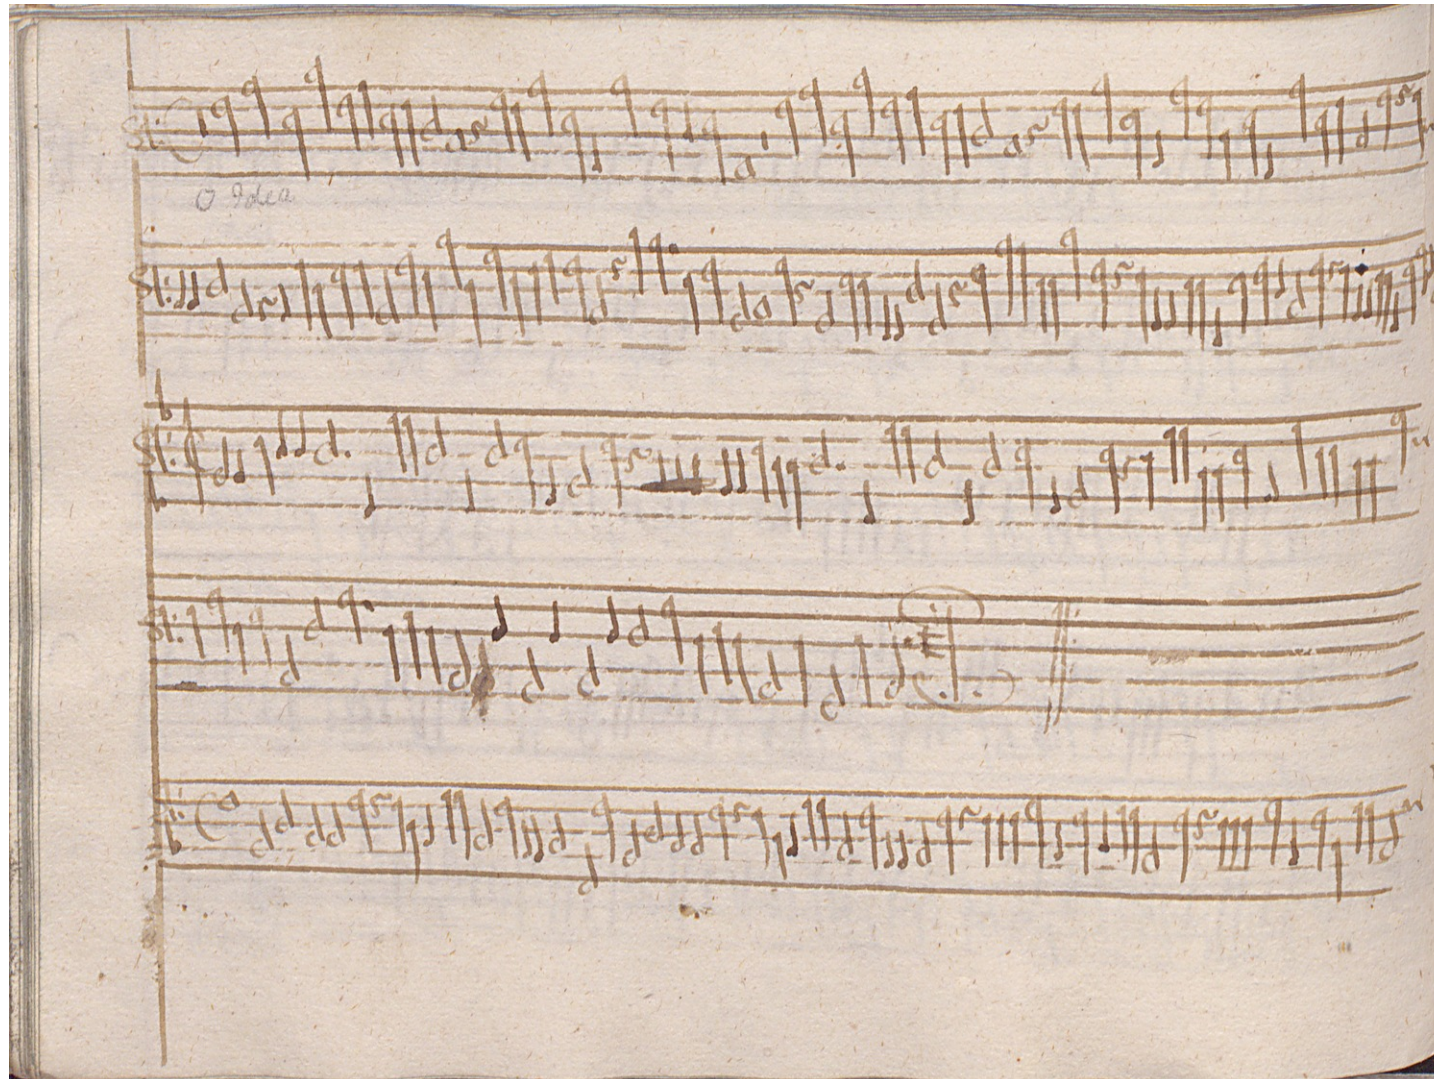 O Idea